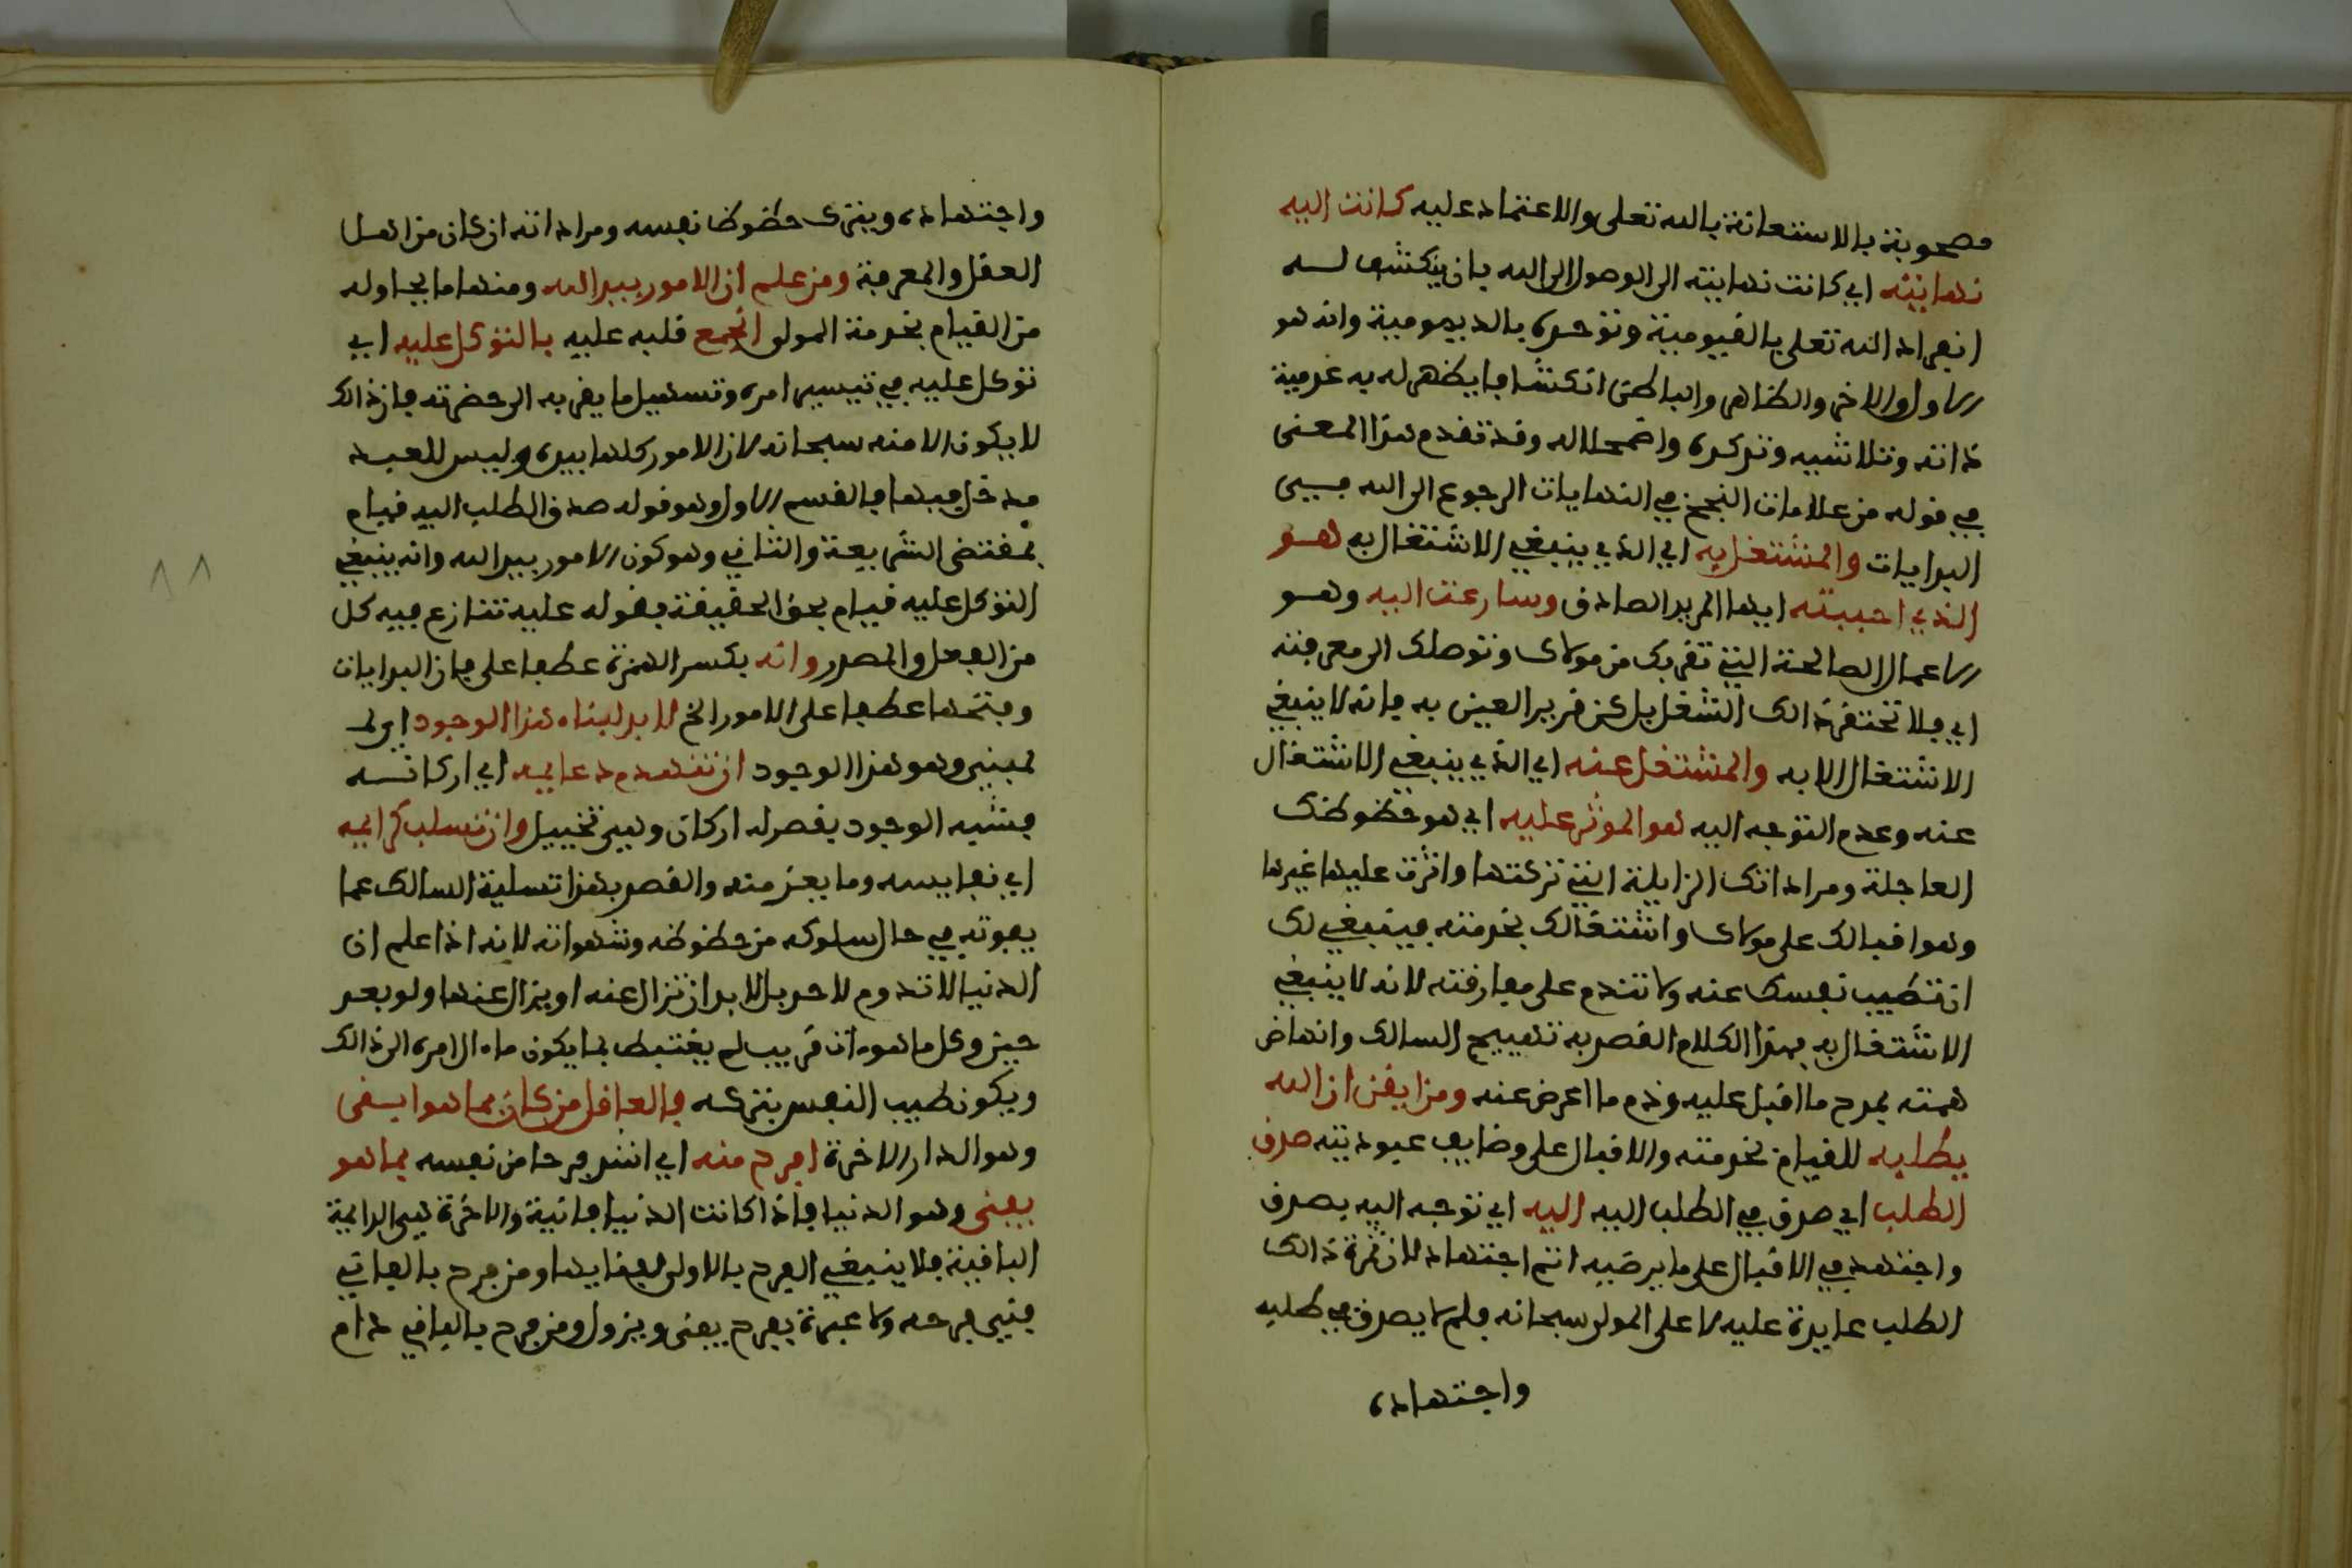 مصحوبة بالاستعانة بالله تعلى والاعتماد عليه كانت اليه
نهايته اي كانت نهايته الى الوصول الى الله بان ينكشف لــه
انفراد الله تعلى بالقيومية وتوحده بالديمومية وانه هو
الاول والاخر والظاهر والباطن انكشافا يظهر له به عدمية
ذاته وتلاشيه وتدكدكه واضمحلاله وقد تقدم هذا المعنى
في قوله من علامات النجح في النهايات الرجوع الى الله في
البدايات والمشتغل به اي الذي ينبغي الاشتغال به هــو
الذي احببته ايها المريد الصادق وسارعت اليه وهــو
الاعمال الصالحة التي تقربك من مولاك وتوصلك الى معرفته
اي فلا تحتقر ذالك الشغل بل كن قرير العين به فانه لا ينبغي
الاشتغال الا به والمشتغل عنه اي الذي ينبغي الاشتغال
عنه وعدم التوجه اليه هو الموثر عليه اي هو حظوظك
العاجلة ومراداتك الزايلة التي تركتها واثرت عليها غيرها
وهو اقبالك على مولاك واشتغالك بخدمته فينبغي لك
ان تطيب نفسك عنه ولا تندم على مفارقته لانه لا ينبغي
الاشتغال به فهذا الكلام القصد به تهييج السالك وانهاض
همته بمدح ما اقبل عليه وذم ما اعرض عنه ومن ايقن ان الله
يطلبه للقيام بخدمته والاقبال على وضايف عبوديته صدق
الطلب اي صدق في الطلب اليه اليه اي توجه اليه بصدق
واجتهد في الاقبال على ما يرضيه اتم اجتهاد لان ثمرة ذالك
الطلب عايدة عليه لا على المولى سبحانه فلم لا يصدق في طلبه
واجتهاده
واجتهاده ويترك حظوظ نفسه ومراداته ان كان من اهــل
العقل والمعرفة ومن علم ان الامور بيد الله ومنها ما يحاوله
من القيام بخدمة المولى انجمع قلبه عليه بالتوكل عليه اي
توكل عليه في تيسير امره وتسهيل ما يقربه الى حضرته فان ذالك
لا يكون الا منه سبحانه لان الامور كلها بيده وليس للعبد
مدخل فيها فالقسم الاول وهو قوله صدق الطلب اليه قيام
بمقتضى الشريعة والثاني وهو كون الامور بيد الله وانه ينبغي
التوكل عليه قيام بحق الحقيقة فقوله عليه تنازع فيه كل
من الفعل والمصدر وانه بكسر الهمزة عطفا على فان البدايات
وفتحها عطفا على الامور الخ لا بد لبناء هذا الوجود اي لـ
لمبني وهو هذا الوجود ان تنهدم دعايمه اي اركانــه
فشبه الوجود بقصر له اركان وهي تخييل وان تسلب كرايمه
اي نفايسه وما يعز منه والقصد بهذا تسلية السالك عما
يفوته في حال سلوكه من حظوظه وشهواته لانه اذا علم ان
الدنيا لا تدوم لاحد بل لا بد ان تزال عنه او يزال عنها ولو بعد
حين وكل ما هو ات قريب لم يغتبط بما يكون ماءال امره الى ذالك
ويكون طيب النفس بتركه فالعاقل من كان بما هو ابـقى
وهو الدار الاخرة افرح منه اي اشد فرحا من نفسه بما هو
يفنى وهو الدنيا فاذا كانت الدنيا فانية والاخرة هي الدايمة
الباقية فلا ينبغي الفرح بالاولى لفنايها ومن فرح بالفاني
فني فرحه ولا عبرة بفرح يفنى ويزول ومن فرح بالباقي دام
٨٨